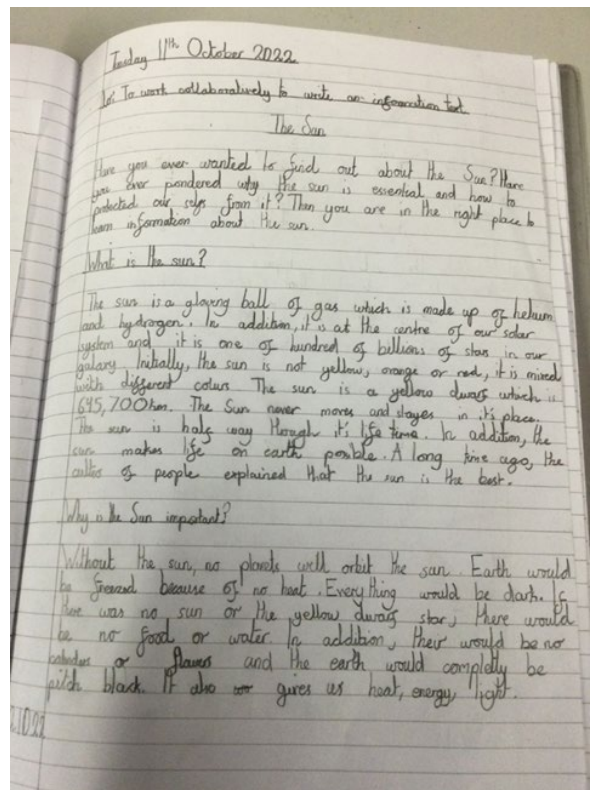 Tuesday 11th October 2022
Lo: To work collaboratively to write an information text
The Sun
Have you ever wanted to find out about the Sun? Have
you ever pondered why the sun is essential and how to
protected our selfs from it? Then you are in the right place to
learn information about the sun.
What is the sun?
The sun is a gloving ball of gas which is made up of helium
and hydrogen. In addition, it is at the centre of our solar
system and it is one of hundred of billions of stars in our
galaxy. Initially, the sun is not yellow, orange or red, it is mixed
with different colurs. The sun is a yellow dwarf which is
695,700km. The Sun never moves and stayes in it's place.
The sun is half way through it's life time. In addition, the
sun makes life on earth posible. A long time ago, the
of people explained that the sun is the best.
Why is the Sun important?
Without the sun, no planets will orbit the sun. Earth would
be because of no heat. Everything would be dark. If
there was no sun or the yellow dwarf star, there would
be no food or water. In addition, their would be no
or flowers and the earth would completly be
pitch black. It also gives us heat, energy, light.